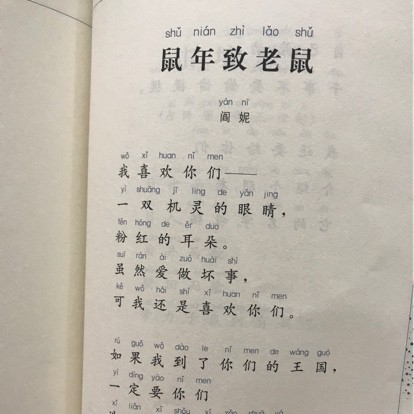 shǔ nián zhì lǎo shǔ
鼠年致老鼠
yán nī
阎妮
wǒ xǐ huan nǐ men
我喜欢你们——
yì shuāng jī líng de yǎn jing
一双机灵的眼睛，
fěn hóng de ěr duo
粉红的耳朵。
suī rán ài zuò huài shì
虽然爱做坏事，
kě wǒ hái shi xǐ huan nǐ men
可我还是喜欢你们。
rú guǒ wǒ dào le nǐ men de wáng guó
如果我到了你们的王国，
yí dìng yào nǐ men
一定要你们